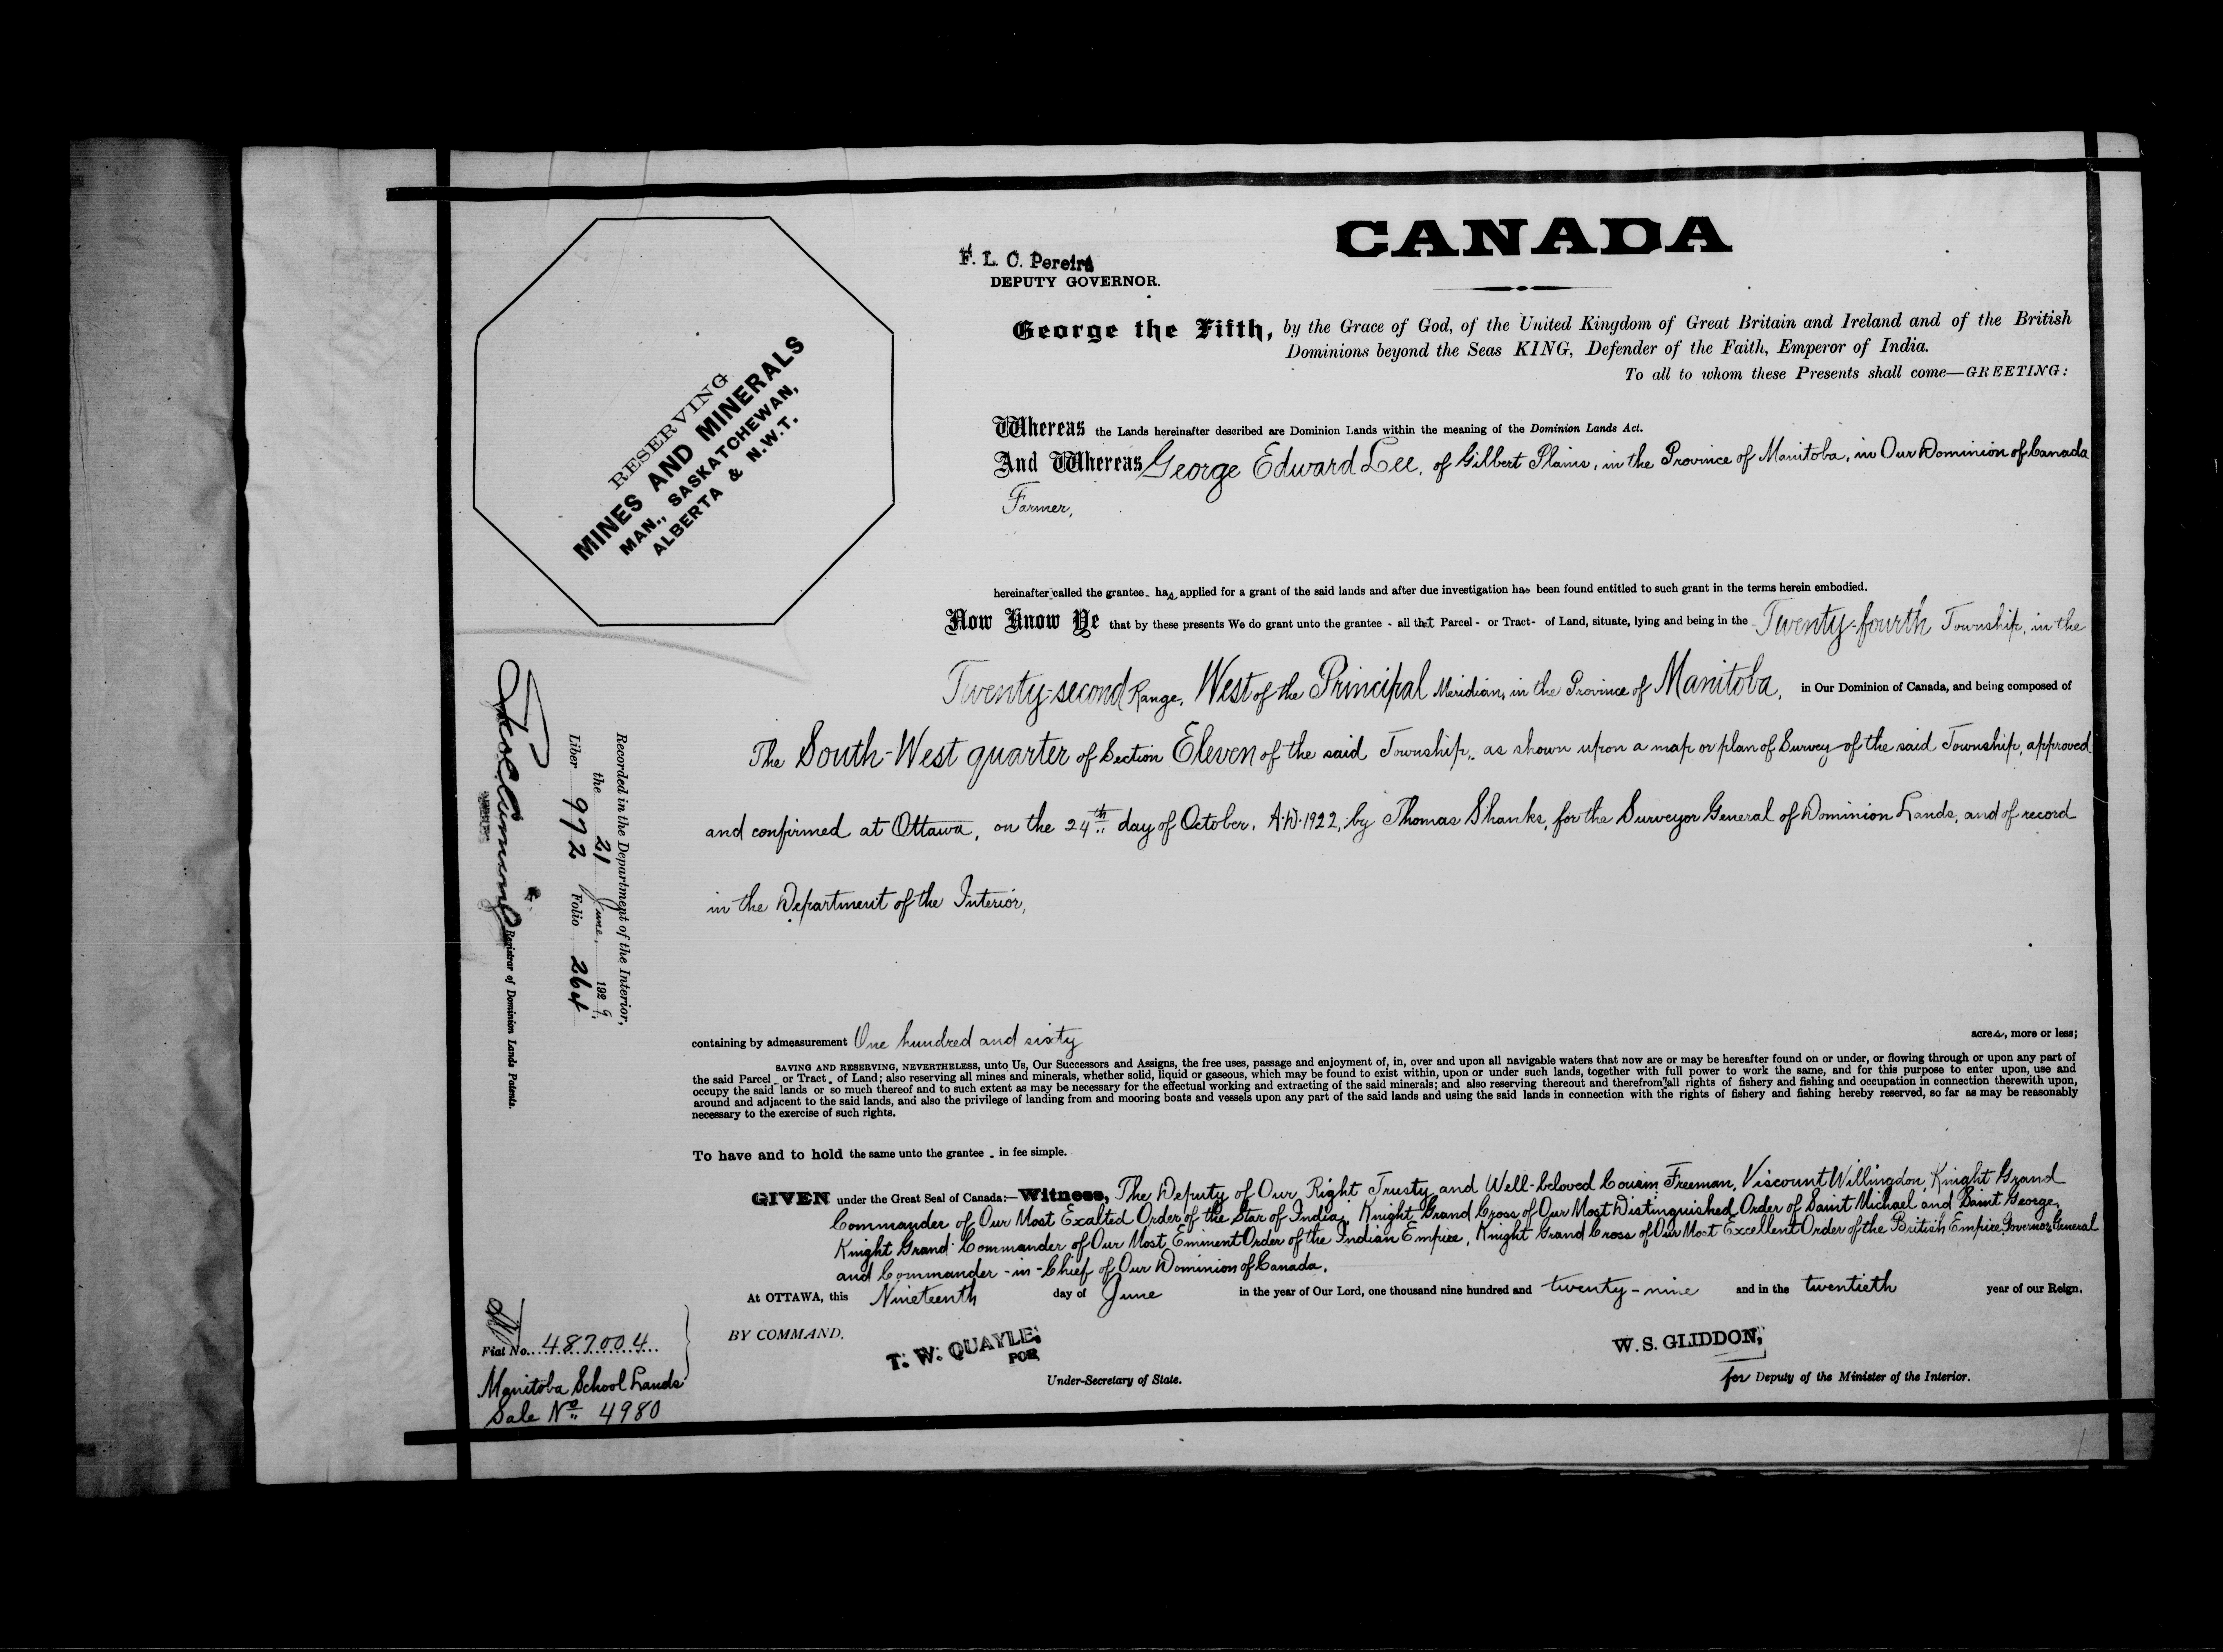 CANADA
F. L. C. Pereira
DEPUTY GOVERNOR.
George the Fifth, by the Grace of God, of the United Kingdom of Great Britain and Ireland and of the British
Dominions beyond the Seas KING, Defender of the Faith, Emperor of India.
To all to whom these Presents shall come—GREETING:
RESERVING
MINES AND MINERALS
MAN., SASKATCHEWAN,
ALBERTA & N.W.T.
Whereas the Lands hereinafter described are Dominion Lands within the meaning of the Dominion Lands Act.
And Whereas George Edward Lee, of Gilbert Plains, in the Province of Manitoba, in Our Dominion of Canada
Farmer,
hereinafter called the grantee - has applied for a grant of the said lands and after due investigation has been found entitled to such grant in the terms herein embodied.
Now Know Ye that by these presents We do grant unto the grantee - all that Parcel - or Tract - of Land, situate, lying and being in the Twenty-fourth Township, in the
Twenty-second Range, West of the Principal Meridian, in the Province of Manitoba, in Our Dominion of Canada, and being composed of
The South-West quarter of Section Eleven of the said Township, as shown upon a map or plan of Survey of the said Township, approved
and confirmed at Ottawa, on the 24th day of October, A.D. 1922, by Thomas Shanks, for the Surveyor General of Dominion Lands, and of record
in the Department of the Interior,
containing by admeasurement One hundred and sixty acres, more or less;
SAVING AND RESERVING, NEVERTHELESS, unto Us, Our Successors and Assigns, the free uses, passage and enjoyment of, in, over and upon all navigable waters that now are or may be hereafter found on or under, or flowing through or upon any part of
the said Parcel - or Tract - of Land; also reserving all mines and minerals, whether solid, liquid or gaseous, which may be found to exist within, upon or under such lands, together with full power to work the same, and for this purpose to enter upon, use and
occupy the said lands or so much thereof and to such extent as may be necessary for the effectual working and extracting of the said minerals; and also reserving thereout and therefrom all rights of fishery and fishing and occupation in connection therewith upon,
around and adjacent to the said lands, and also the privilege of landing from and mooring boats and vessels upon any part of the said lands and using the said lands in connection with the rights of fishery and fishing hereby reserved, so far as may be reasonably
necessary to the exercise of such rights.
To have and to hold the same unto the grantee - in fee simple.
GIVEN under the Great Seal of Canada:—Witness, The Deputy of Our Right Trusty and Well-beloved Cousin Freeman, Viscount Willingdon, Knight Grand
Commander of Our Most Exalted Order of the Star of India, Knight Grand Cross of Our Most Distinguished Order of Saint Michael and Saint George,
Knight Grand Commander of Our Most Eminent Order of the Indian Empire, Knight Grand Cross of Our Most Excellent Order of the British Empire, Governor General
and Commander-in-Chief of Our Dominion of Canada.
At OTTAWA, this Nineteenth day of June in the year of Our Lord, one thousand nine hundred and twenty-nine and in the twentieth year of our Reign.
BY COMMAND.
T. W. QUAYLE,
FOR
Under-Secretary of State.
W. S. GLIDDON,
for Deputy of the Minister of the Interior.
Recorded in the Department of the Interior,
the 21 June, 1929,
Liber 972 Folio 264
Registrar of Dominion Lands Patents.
Fiat No. 487004
Manitoba School Lands
Sale No. 4980